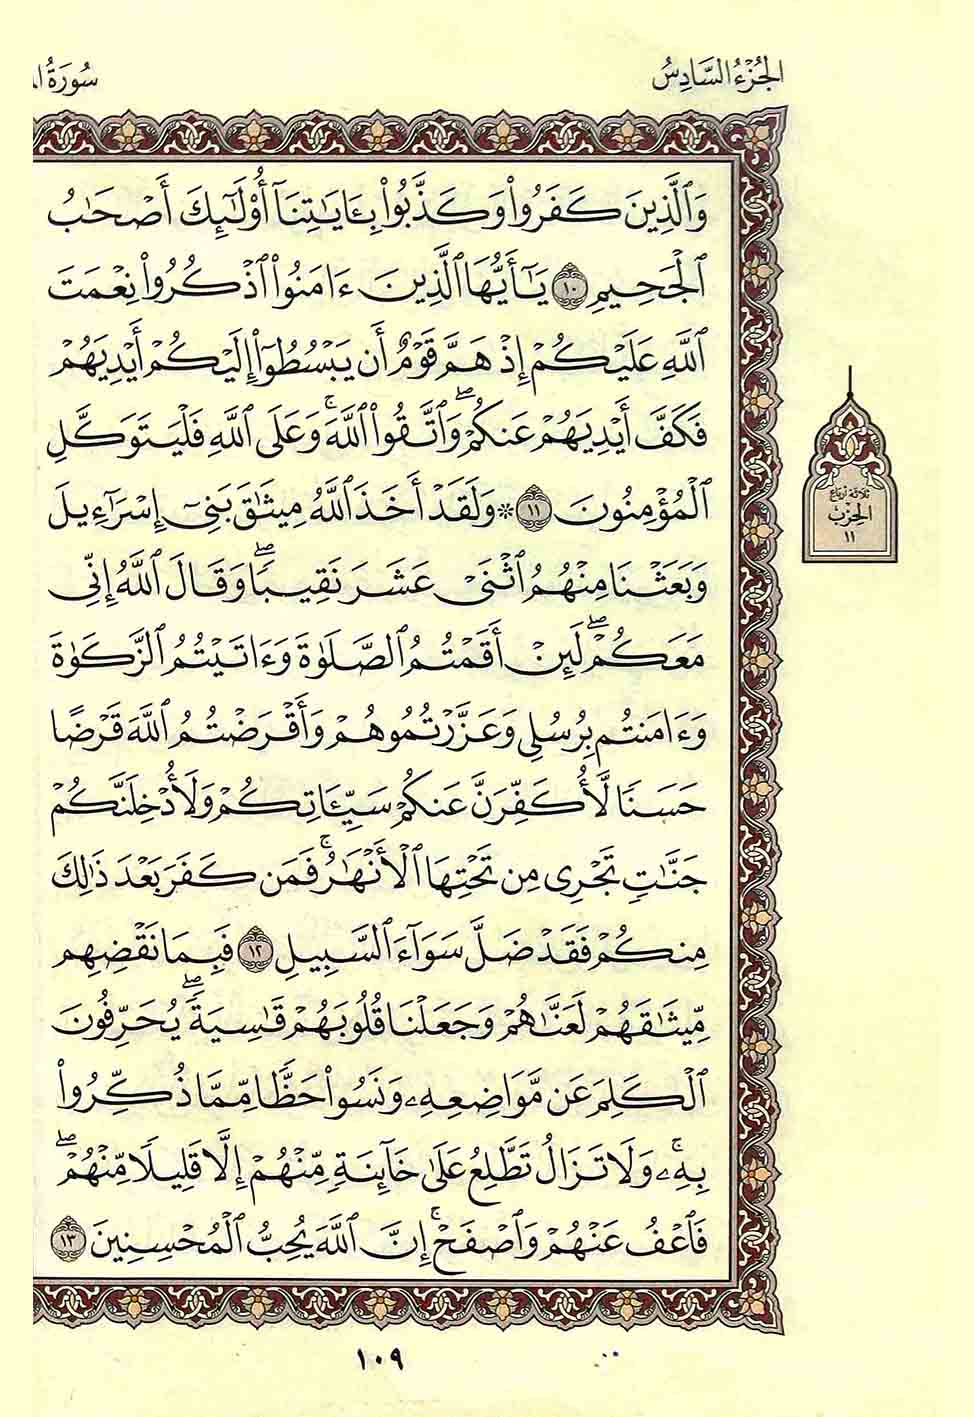 الجُزْءُ السَّادِسُ
سُورَةُ
وَٱلَّذِينَ كَفَرُوا۟ وَكَذَّبُوا۟ بِـَٔايَـٰتِنَآ أُو۟لَـٰٓئِكَ أَصْحَـٰبُ
ٱلْجَحِيمِ ١٠ يَـٰٓأَيُّهَا ٱلَّذِينَ ءَامَنُوا۟ ٱذْكُرُوا۟ نِعْمَتَ
ٱللَّهِ عَلَيْكُمْ إِذْ هَمَّ قَوْمٌ أَن يَبْسُطُوٓا۟ إِلَيْكُمْ أَيْدِيَهُمْ
فَكَفَّ أَيْدِيَهُمْ عَنكُمْ ۖ وَٱتَّقُوا۟ ٱللَّهَ ۚ وَعَلَى ٱللَّهِ فَلْيَتَوَكَّلِ
ٱلْمُؤْمِنُونَ ١١ ۞ وَلَقَدْ أَخَذَ ٱللَّهُ مِيثَـٰقَ بَنِىٓ إِسْرَٰٓءِيلَ
وَبَعَثْنَا مِنْهُمُ ٱثْنَىْ عَشَرَ نَقِيبًا ۖ وَقَالَ ٱللَّهُ إِنِّى
مَعَكُمْ ۖ لَئِنْ أَقَمْتُمُ ٱلصَّلَوٰةَ وَءَاتَيْتُمُ ٱلزَّكَوٰةَ
وَءَامَنتُم بِرُسُلِى وَعَزَّرْتُمُوهُمْ وَأَقْرَضْتُمُ ٱللَّهَ قَرْضًا
حَسَنًا لَّأُكَفِّرَنَّ عَنكُمْ سَيِّـَٔاتِكُمْ وَلَأُدْخِلَنَّكُمْ
جَنَّـٰتٍ تَجْرِى مِن تَحْتِهَا ٱلْأَنْهَـٰرُ ۚ فَمَن كَفَرَ بَعْدَ ذَٰلِكَ
مِنكُمْ فَقَدْ ضَلَّ سَوَآءَ ٱلسَّبِيلِ ١٢ فَبِمَا نَقْضِهِم
مِّيثَـٰقَهُمْ لَعَنَّـٰهُمْ وَجَعَلْنَا قُلُوبَهُمْ قَـٰسِيَةً ۖ يُحَرِّفُونَ
ٱلْكَلِمَ عَن مَّوَاضِعِهِۦ وَنَسُوا۟ حَظًّا مِّمَّا ذُكِّرُوا۟
بِهِۦ ۚ وَلَا تَزَالُ تَطَّلِعُ عَلَىٰ خَآئِنَةٍ مِّنْهُمْ إِلَّا قَلِيلًا مِّنْهُمْ ۖ
فَٱعْفُ عَنْهُمْ وَٱصْفَحْ ۚ إِنَّ ٱللَّهَ يُحِبُّ ٱلْمُحْسِنِينَ ١٣
ثلاثة أرباع
الحزب
١١
١٠٩